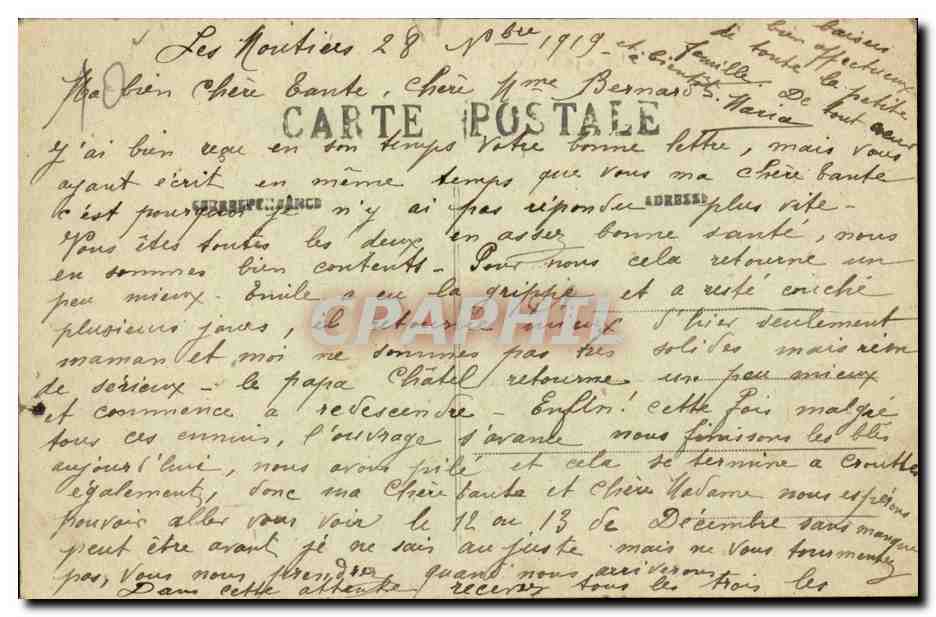 Les Moutiers 28 Nbre 1919
Ma bien Chère Tante, Chère Mme Bernard.
CARTE POSTALE
J'ai bien reçu en son temps votre bonne lettre, mais vous
ayant écrit en même temps que vous ma Chère tante
CORRESPONDANCE ADRESSE
c'est pourquoi je n'y ai pas répondu plus vite -
Vous êtes toutes les deux en assez bonne santé, nous
en sommes bien contents - Pour nous cela retourne un
peu mieux - Emile a eu la grippe et a resté couché
CPAPHIL
plusieurs jours, il retourne mieux d'hier seulement
maman et moi ne sommes pas très solides mais rien
de sérieux - le papa Châtel retourne un peu mieux
et commence a redescendre - Enfin! cette fois malgré
tous ces ennuis, l'ouvrage s'avance nous finissons les blés
aujourd'hui, nous avons pilé et cela se termine a Crouttes
également, donc ma Chère tante et Chère Madame nous espérons
pouvoir aller vous voir le 12 ou 13 de Décembre sans manque
peut être avant je ne sais au juste mais ne vous tourmentez
pas, vous nous prendrez quand nous arriverons
Dans cette attente recevez tous les trois les
bien affectueux baisers
de toute la petite
famille. De tout cœur
et à bientôt. Maria